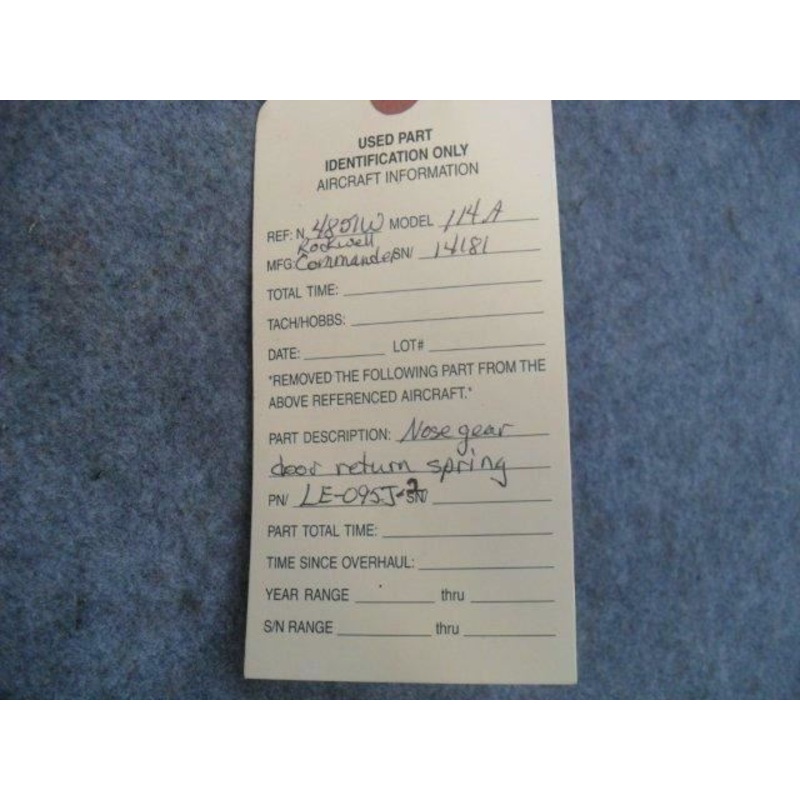 USED PART
IDENTIFICATION ONLY
AIRCRAFT INFORMATION
REF: N 4801W MODEL 114A
Rockwell
MFG: Commander SN/ 14181
TOTAL TIME:
TACH/HOBBS:
DATE: LOT#
"REMOVED THE FOLLOWING PART FROM THE
ABOVE REFERENCED AIRCRAFT."
PART DESCRIPTION: Nose gear
door return spring
PN/ LE-095J-2 SN/
PART TOTAL TIME:
TIME SINCE OVERHAUL:
YEAR RANGE thru
S/N RANGE thru